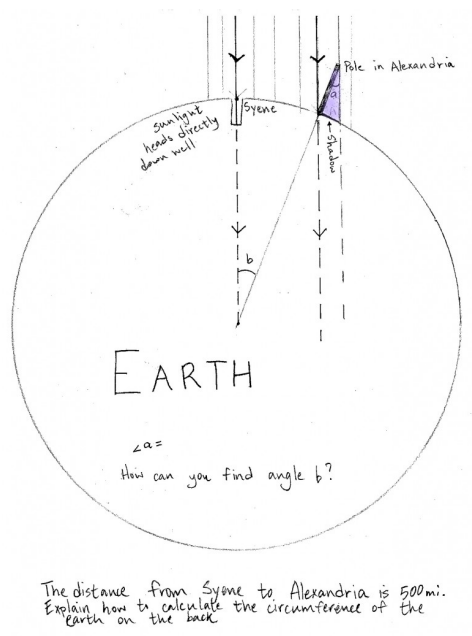 Pole in Alexandria
a
Syene
sunlight
heads directly
down well
Shadow
b
EARTH
∠a=
How can you find angle b?
The distance from Syene to Alexandria is 500 mi.
Explain how to calculate the circumference of the
earth on the back